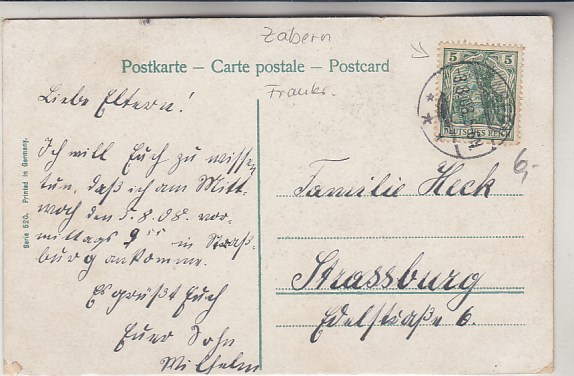 Zabern
Postkarte – Carte postale – Postcard
Frankr.
5 5
DEUTSCHES REICH
Liebe Eltern!
Ich will Euch zu wissen
tun, daß ich am Mitt-
woch den 5.8.08. vor-
mittags 9⁵⁵ in Straß-
burg ankomme.
Es grüßt Euch
Euer Sohn
Wilhelm
Familie Heck
Strassburg
Edelstraße 6.
6,-
Serie 520. Printed in Germany.